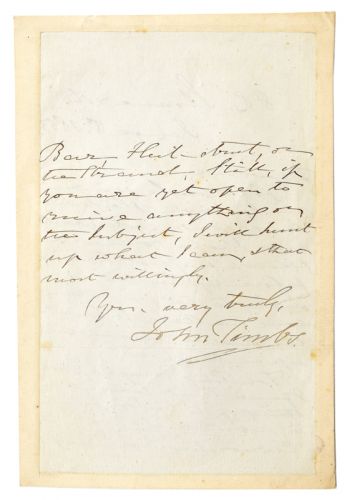 Bar, Fleet-street, or
the Strand. Still, if
you are yet open to
receive anything on
the Subject, I will hunt
up what I can, & that
most willingly.
Yrs. very truly,
John Timbs.